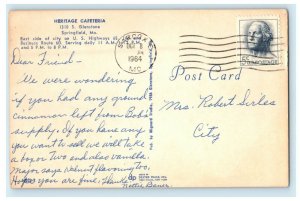 HERITAGE CAFETERIA
1310 S. Glenstone
Springfield, Mo.
East side of city on U. S. Highways 65,
Business Route 60. Serving daily 11 A.M.
and 5 P.M. to 8 P.M.
1964
MO.
5¢
U.S. POSTAGE
Dear Friend-
We were wondering
if you had any ground
cinnamon left from Bob's
supply. If you have any
you want to sell we will take
a box or two and also vanilla.
Major says walnut flavoring too.
Hope you are fine. Thanks
Hattie Bauer
Post Card
Mrs. Robert Siles
City